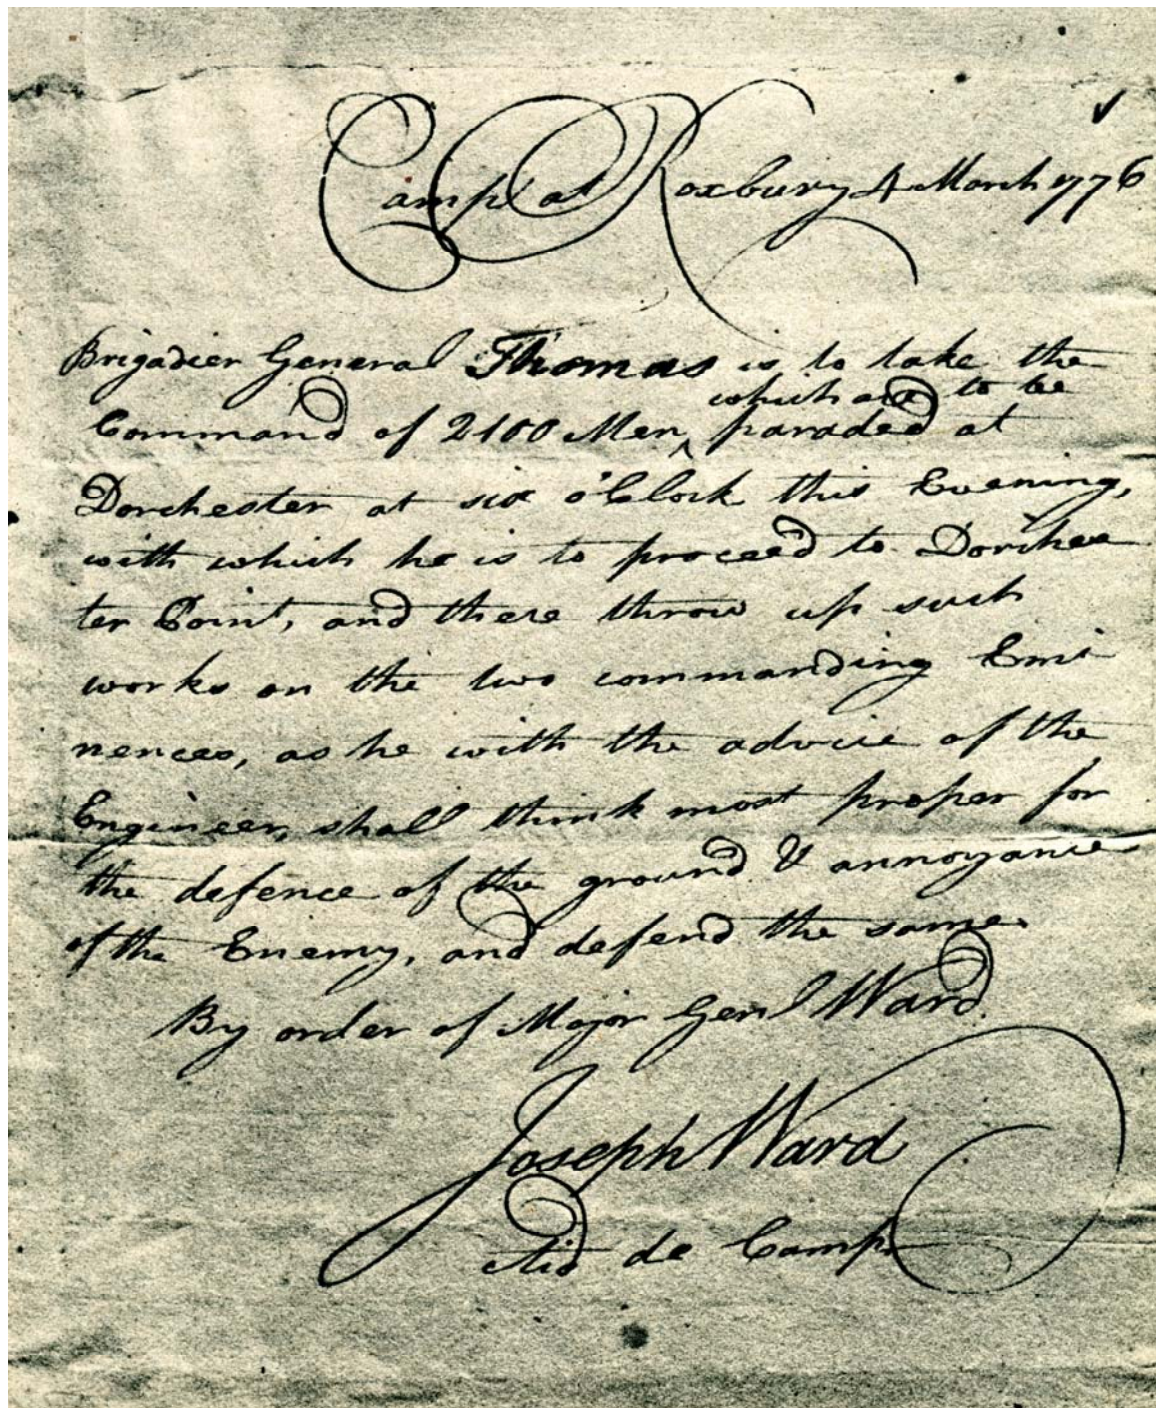 Camp at Roxbury 4 March 1776
Brigadier General Thomas is to take the
which are to be
Command of 2100 Men, ^ paraded at
Dorchester at six o'Clock this Evening,
with which he is to proceed to Dorches
ter Point, and there throw up such
works on the two commanding Emi
nences, as he with the advice of the
Engineer, shall think most proper for
the defence of the ground & annoyance
of the Enemy, and defend the same.
By order of Major Genl Ward.
Joseph Ward
Aid de Camp